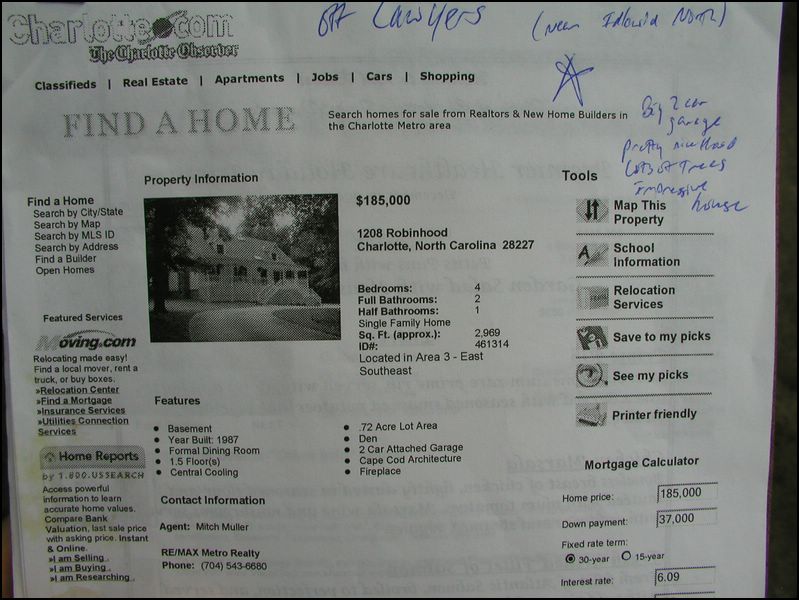 Off Lawyers (near Idlewild North)
Charlotte.com
The Charlotte Observer
Classifieds | Real Estate | Apartments | Jobs | Cars | Shopping
FIND A HOME
Search homes for sale from Realtors & New Home Builders in
the Charlotte Metro area
Big 2 car
garage
pretty nice hood
Lots of Trees
Impressive
house
Find a Home
Search by City/State
Search by Map
Search by MLS ID
Search by Address
Find a Builder
Open Homes
Featured Services
Moving.com
Relocating made easy!
Find a local mover, rent a
truck, or buy boxes.
»Relocation Center
»Find a Mortgage
»Insurance Services
»Utilities Connection
Services
Home Reports
by 1.800.USSEARCH
Access powerful
information to learn
accurate home values.
Compare Bank
Valuation, last sale price
with asking price. Instant
& Online.
»I am Selling.
»I am Buying.
»I am Researching.
Property Information
$185,000
1208 Robinhood
Charlotte, North Carolina 28227
Bedrooms: 4
Full Bathrooms: 2
Half Bathrooms: 1
Single Family Home
Sq. Ft. (approx.): 2,969
ID#: 461314
Located in Area 3 - East
Southeast
Features
Basement
Year Built: 1987
Formal Dining Room
1.5 Floor(s)
Central Cooling
.72 Acre Lot Area
Den
2 Car Attached Garage
Cape Cod Architecture
Fireplace
Contact Information
Agent: Mitch Muller
RE/MAX Metro Realty
Phone: (704) 543-6680
Tools
Map This
Property
School
Information
Relocation
Services
Save to my picks
See my picks
Printer friendly
Mortgage Calculator
Home price: 185,000
Down payment: 37,000
Fixed rate term:
30-year 15-year
Interest rate: 6.09